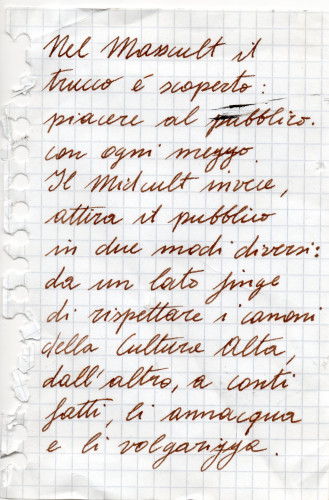 Nel Masscult il
trucco é scoperto:
piacere al pubblico.
con ogni mezzo
Il Midcult invece,
attira il pubblico
in due modi diversi:
da un lato finge
di rispettare i canoni
della Cultura Alta,
dall'altro, a conti
fatti, li annacqua
e li volgarizza.